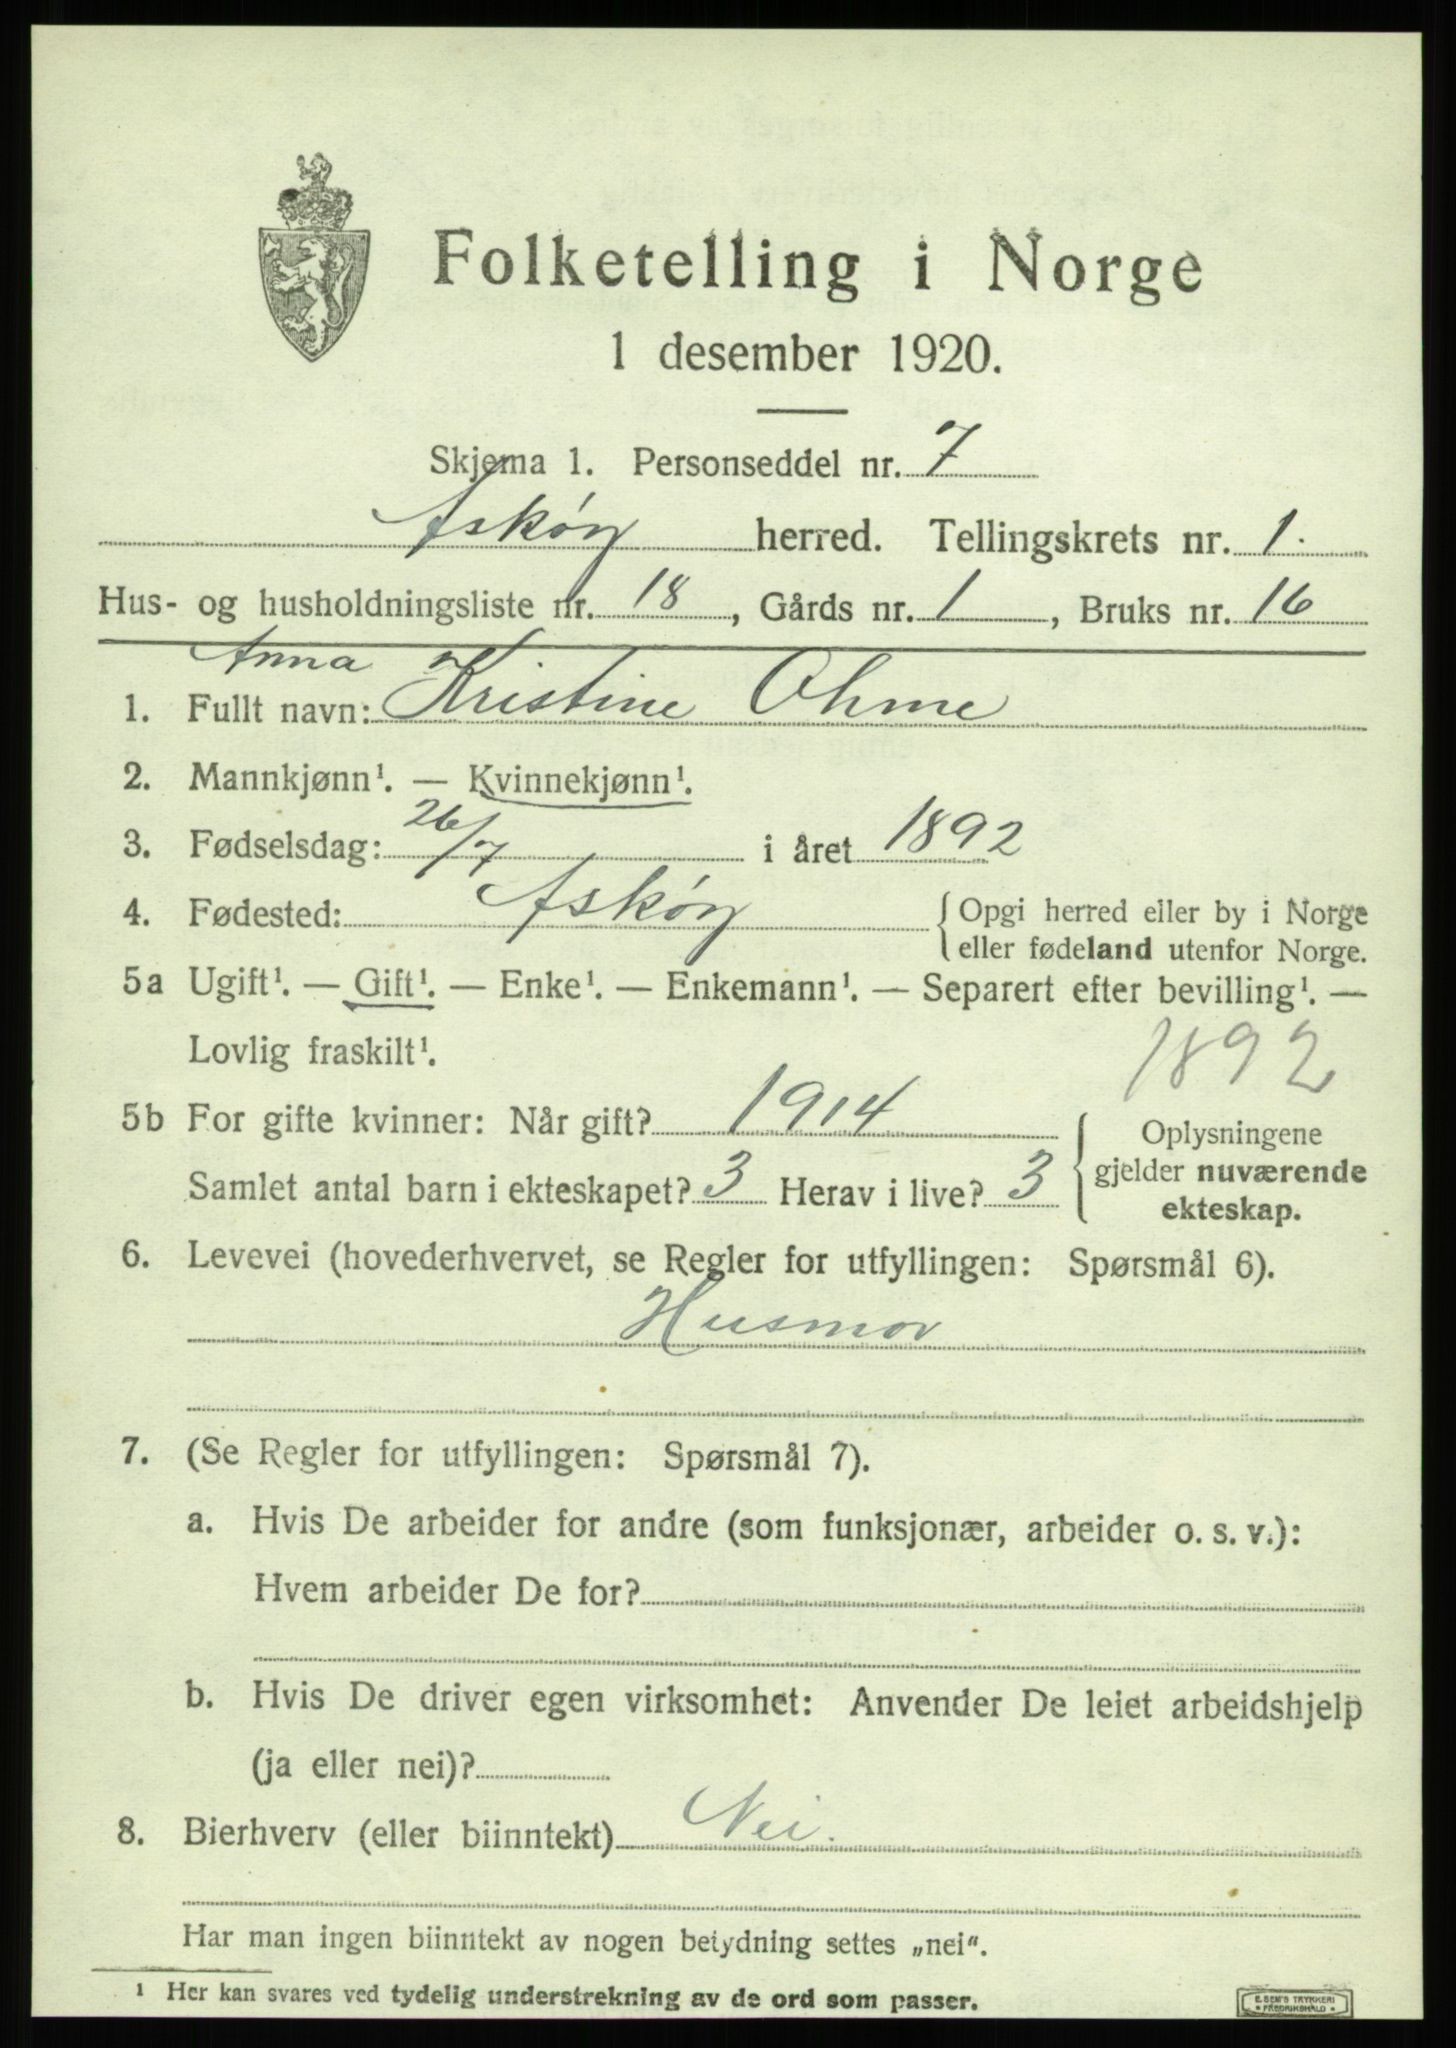 Folketelling i Norge
1 desember 1920.
Skjema 1. Personseddel nr. 7
Askøy herred. Tellingskrets nr. 1.
Hus- og husholdningsliste nr. 18, Gårds nr. 1, Bruks nr. 16
Anna
1. Fullt navn: Kristine Ohme
2. Mannkjønn¹. — Kvinnekjønn¹.
3. Fødselsdag: 26/7 i året 1892
4. Fødested: Askøy { Opgi herred eller by i Norge
eller fødeland utenfor Norge.
5a Ugift¹. — Gift¹. — Enke¹. — Enkemann¹. — Separert efter bevilling¹. —
Lovlig fraskilt¹.
1892
5b For gifte kvinner: Når gift? 1914
Samlet antal barn i ekteskapet? 3 Herav i live? 3
{ Oplysningene
gjelder nuværende
ekteskap.
6. Levevei (hovederhvervet, se Regler for utfyllingen: Spørsmål 6).
Husmor
7. (Se Regler for utfyllingen: Spørsmål 7).
a. Hvis De arbeider for andre (som funksjonær, arbeider o. s. v.):
Hvem arbeider De for?
b. Hvis De driver egen virksomhet: Anvender De leiet arbeidshjelp
(ja eller nei)?
8. Bierhverv (eller biinntekt) Nei.
Har man ingen biinntekt av nogen betydning settes „nei“.
¹ Her kan svares ved tydelig understrekning av de ord som passer.
E. SEM'S TRYKKERI
* FREDRIKSHALD *